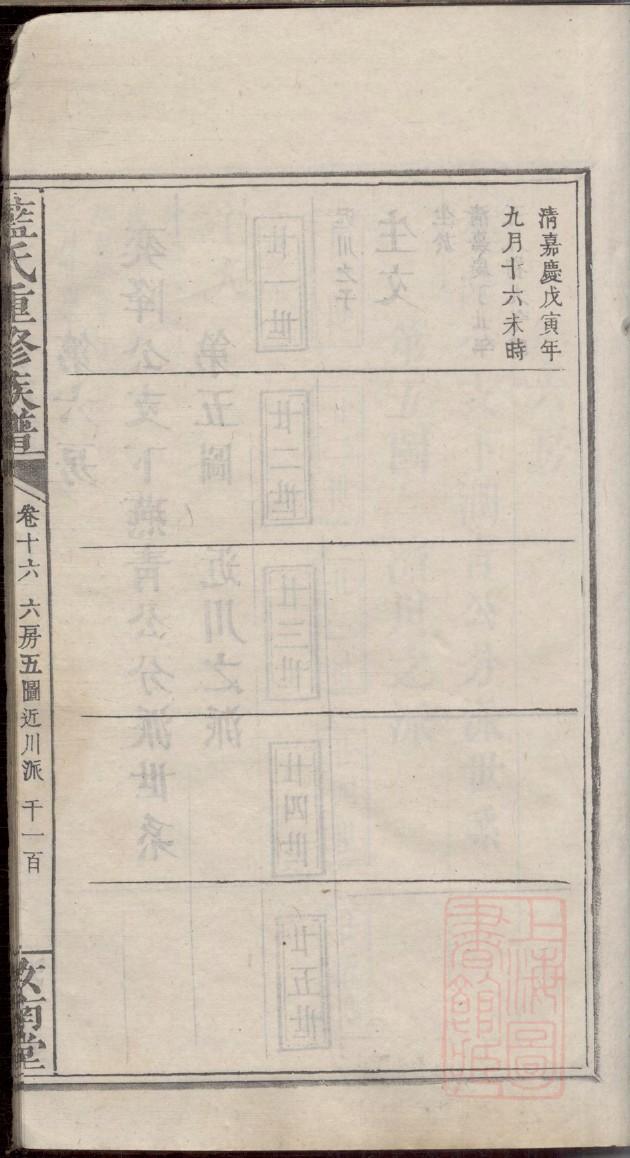 清嘉慶戊寅年
九月十六未時
藍氏重修族譜
卷十六 六房五圖近川派 千一百
汝南堂
上海圖
書館藏